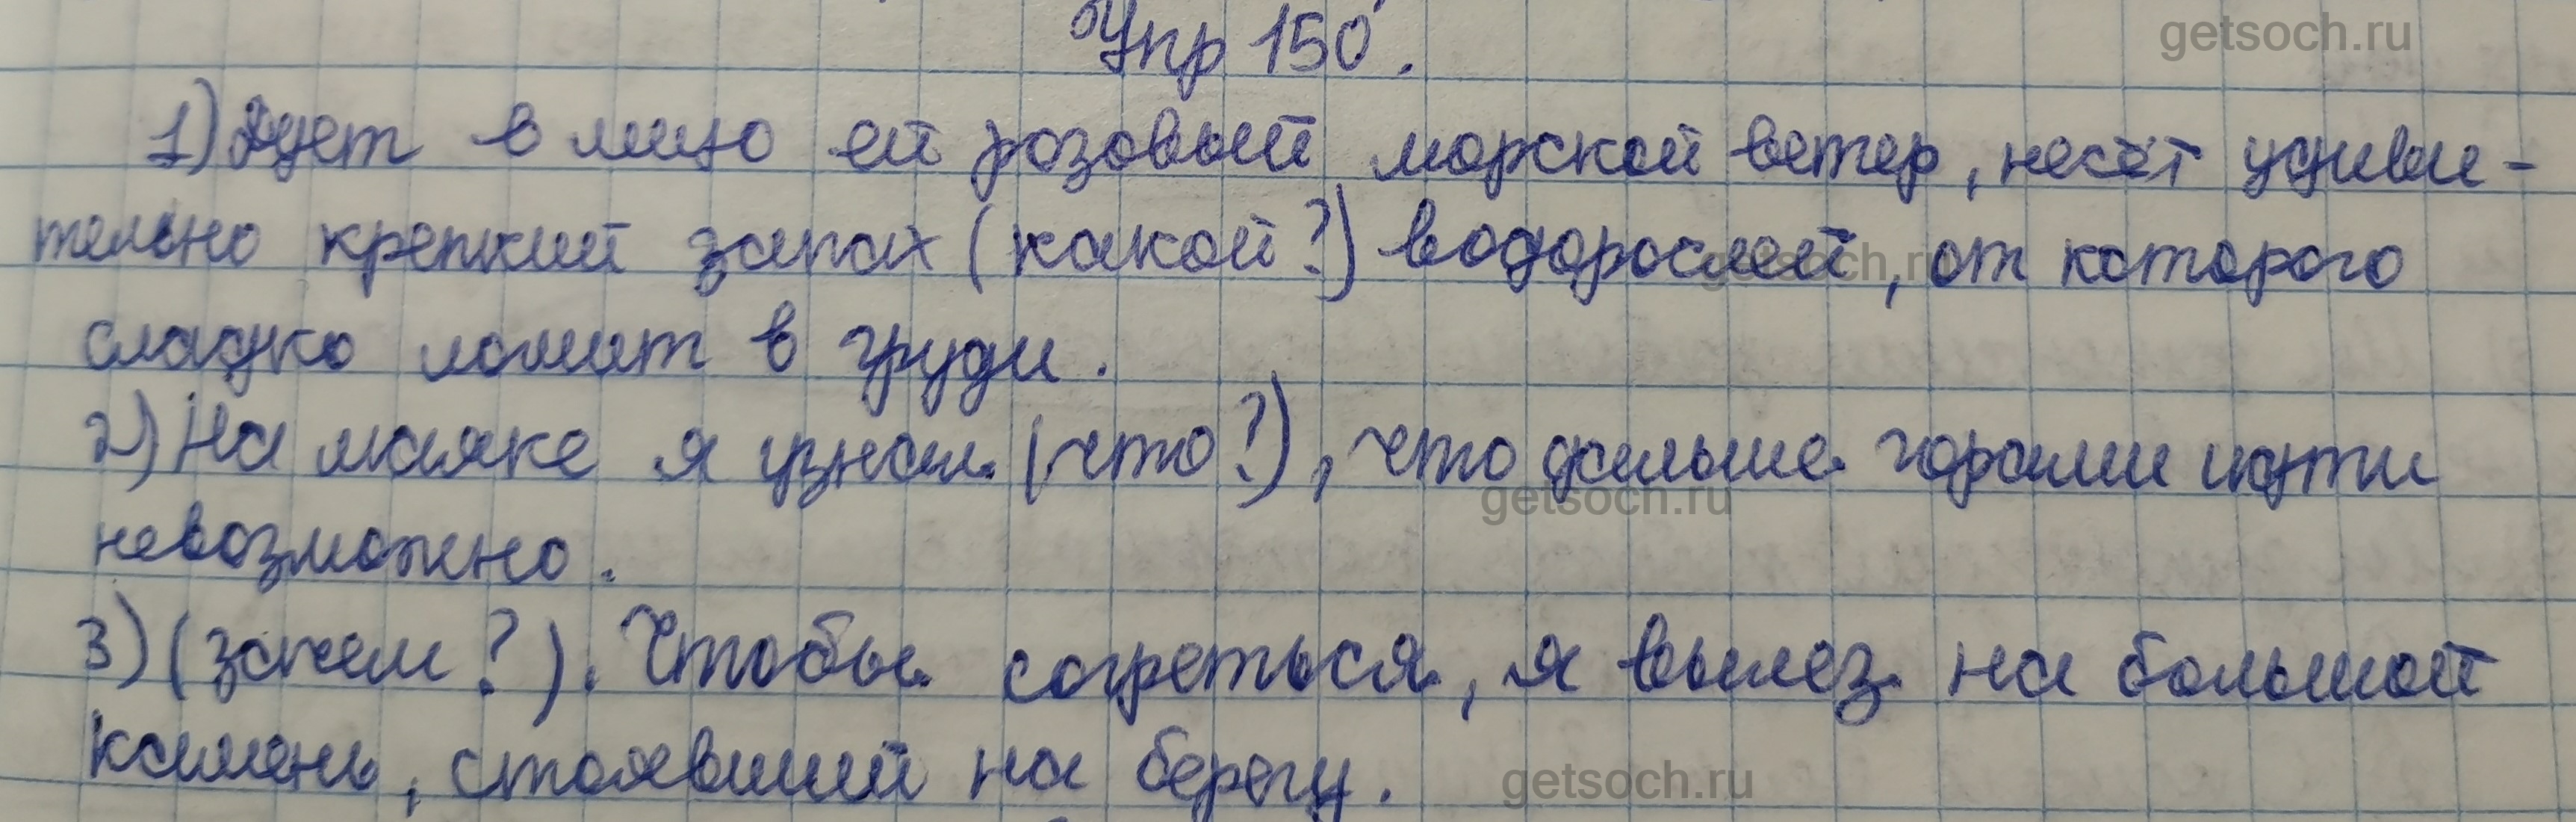 Упр 150.
getsoch.ru
1) Дует в лицо ей розовый морской ветер, несёт удиви-
тельно крепкий запах (какой?) водорослей, от которого
getsoch.ru
сладко ломит в груди.
2) На маяке я узнал (что?), что дальше горами идти
getsoch.ru
невозможно.
3) (зачем?). Чтобы согреться, я вылез на большой
камень, стоявший на берегу.
getsoch.ru